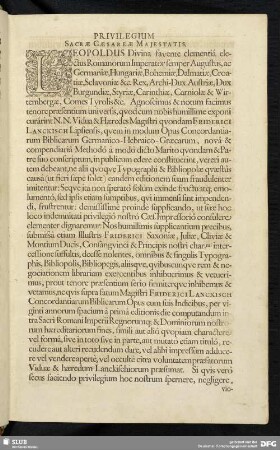 PRIVILEGIUM
SACRÆ CÆSAREÆ MAJESTATIS
LEOPOLDUS Divina favente clementiâ, ele-
ctus Romanorum Imperator semper Augustus, ac
Germaniæ, Hungariæ, Bohemiæ, Dalmatiæ, Croa-
tiæ, Sclavoniæ &c. Rex, Archi-Dux Austriæ, Dux
Burgundiæ, Styriæ, Carinthiæ, Carniolæ & Wir-
tembergæ, Comes Tyrolis &c. Agnoscimus & notum facimus
tenore præsentium universis, quod cum nobis humillime exponi
curârint N. N. Vidua & Hæredes Magistri quondam FRIDERICI
LANCKISCH Lipsiensis, quem in modum Opus Concordantia-
rum Biblicarum Germanico-Hebraico-Græcarum, novâ &
compendiariâ Methodo â modò dicto Marito quondam & Pa-
tre suo conscriptum, in publicum edere constituerint, vereri au-
tem debeant, ne alii quoque Typographi & Bibliopolæ quæstûs
causâ, (ut fieri sæpe solet) eandem editionem suam fraudulenter
imitentur: Seque ita non sperato solùm exinde fructu atq; emo-
lumento, sed ipsis etiam sumptibus, qui in
di, frustrentur; demississimè proinde supplicando, ut sibi hoc
loco indemnitati privilegiô nostrô Cæs. Impressoriô consulere
clementer dignaremur: Nos humillimis supplicantium precibus,
submissâ etiam Illustris FRIDERICI Saxoniæ, Juliæ, Cliviæ &
Montium Ducis, Consanguinei & Principis nostri charissimi inter-
cessione suffultis, deesse nolentes, omnibus & singulis Typogra-
phis, Bibliopolis, Bibliopegis, aliisque, quibuscunque rem & ne-
gociationem librariam exercentibus inhibuerimus & vetueri-
mus, prout tenore præsentium seriò firmiterque inhibemus &
vetamus, ne quis supra fatum Magistri FRIDERICI LANCKISCH
Concordantiarum Biblicarum Opus cum suis Indicibus, per vi-
ginti annorum spacium à primâ editionis die computandum in-
tra Sacri Romani Imperii Regnorumq; & Dominiorum nostro-
rum hæreditariorum fines, simili aut alio quopiam charactere
vel formâ, sive in toto sive in parte, aut mutato etiam titulô, re-
cudere aut alteri recudendum dare, vel alibi impressum adduce-
re vel vendere apertè, vel occultè citra voluntatem præfatorum
Viduæ & hæredum Lanckischiorum præsumat. Si quis verò
secus faciendo privilegium hoc nostrum spernere, negligere,
vio-
SLUB
DFG